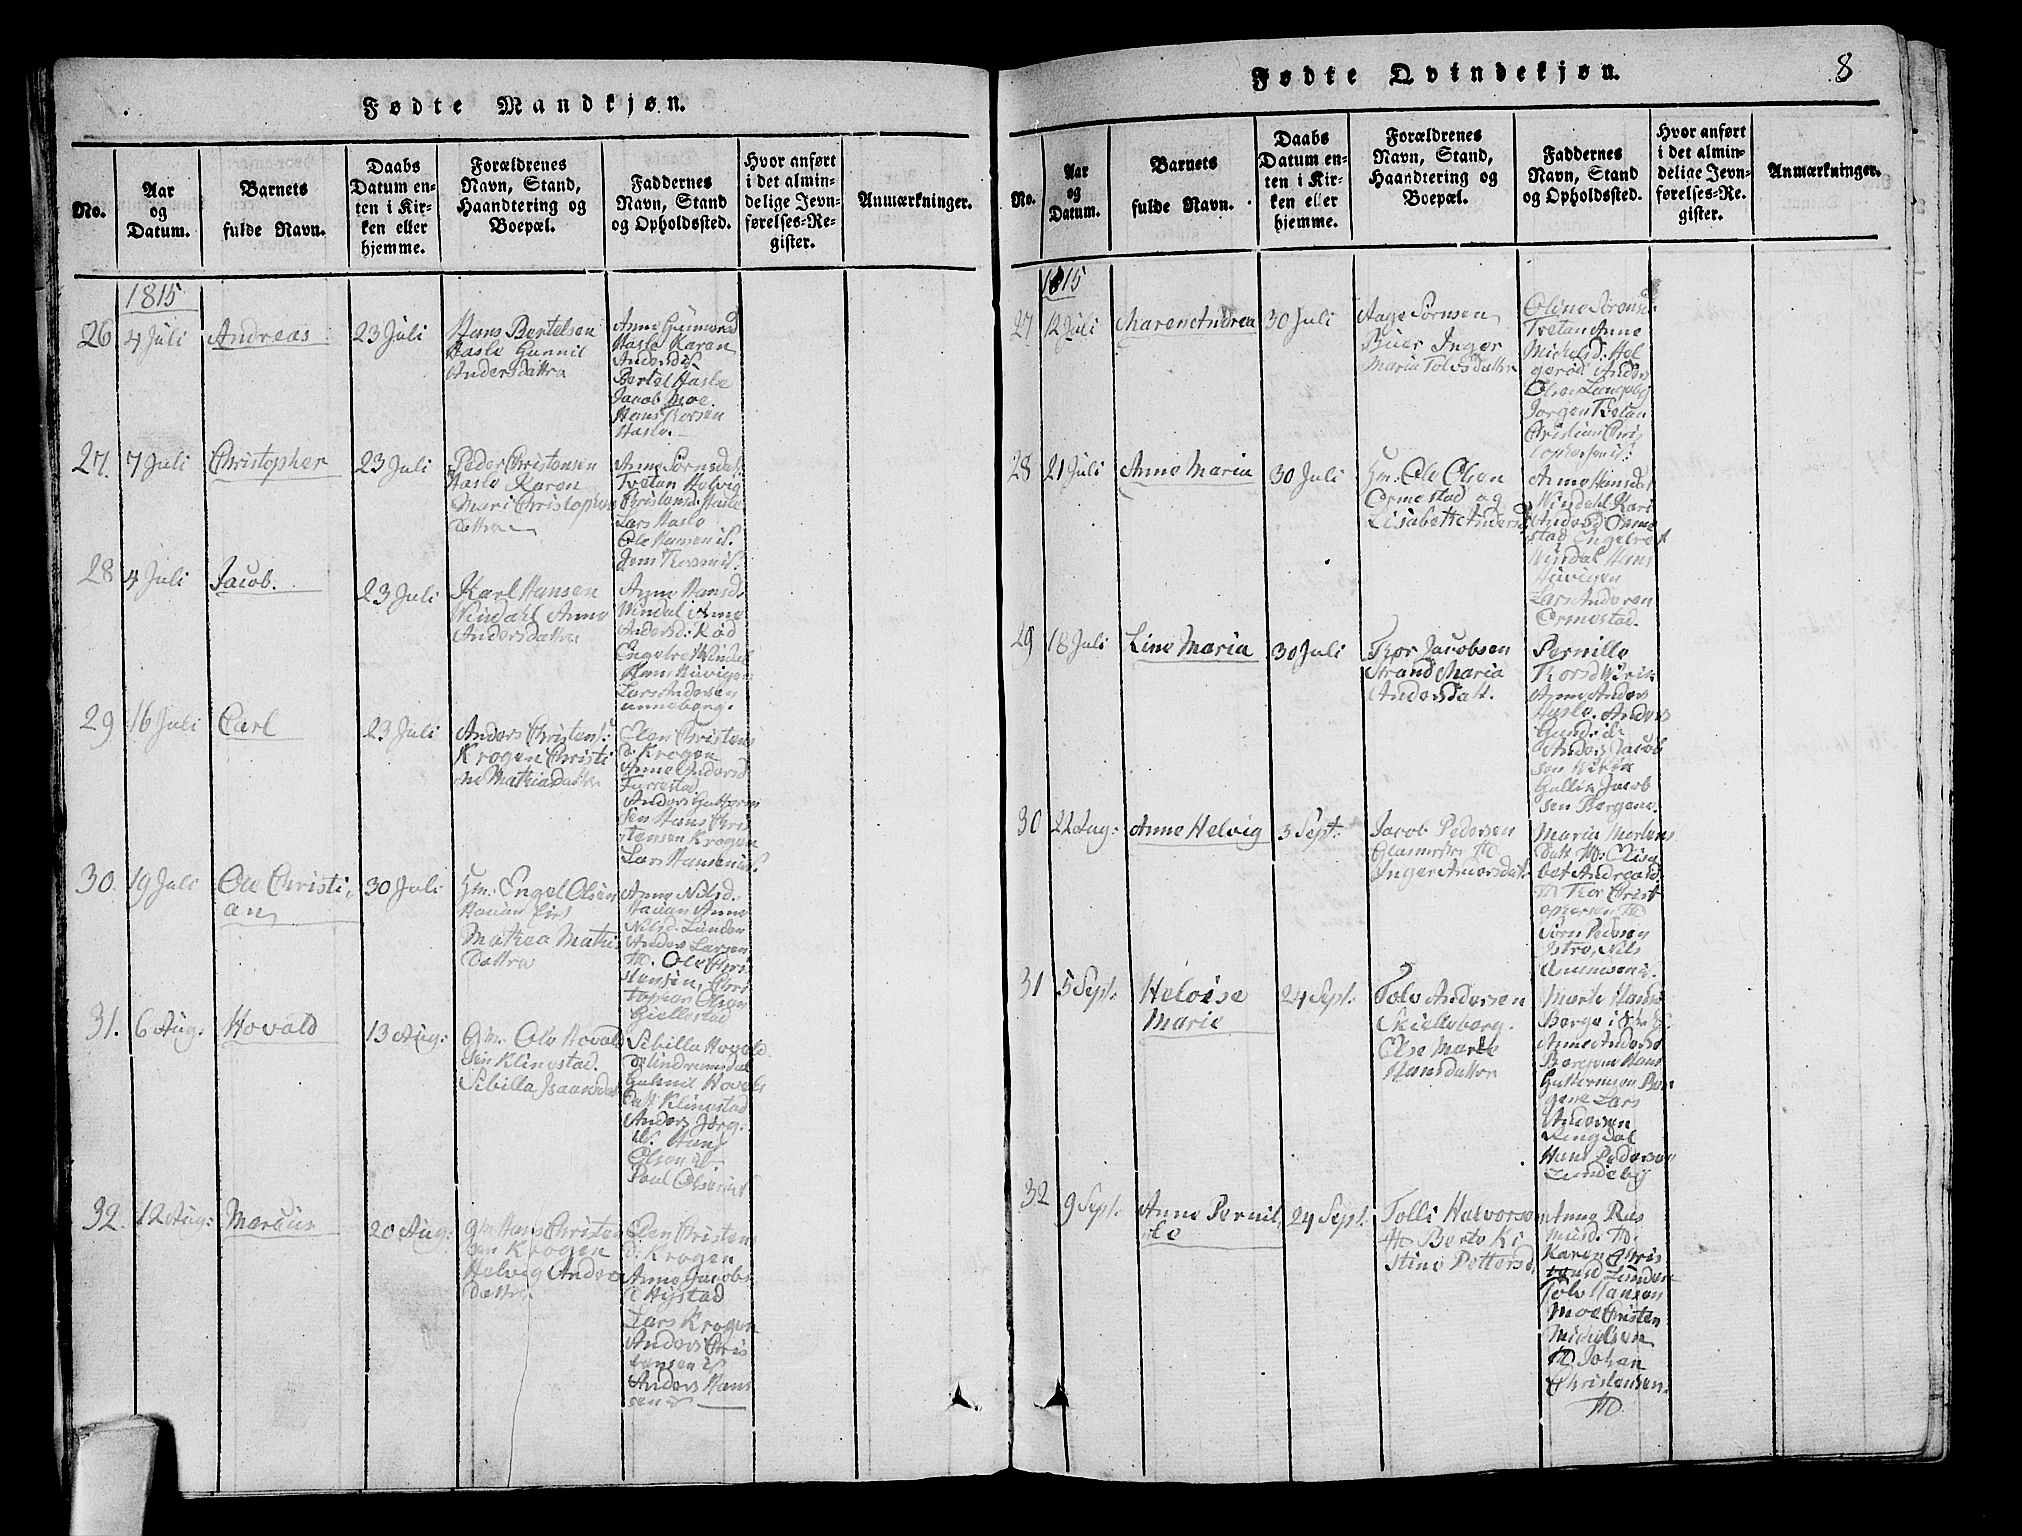 Fødte Mandkjøn.
No.
Aar
og
Datum.
Barnets
fulde Navn.
Daabs
Datum en-
ten i Kir-
ken eller
hjemme.
Forældrenes
Navn, Stand,
Haandtering og
Boepæl.
Faddernes
Navn, Stand
og Opholdssted.
Hvor anført
i det almin-
delige Jevn-
førelses-Re-
gister.
Anmærkninger.
1815
26
4 Juli
Andreas
23 Juli
Hans Bertelsen
Hasle Gunnil
Andersdattre
Anne
Hasle Karen
Bertel Hasle
Jacob Moe.
Hans Thorsen
Hasle.
27.
7 Juli
Christopher
23 Juli
Peder Christensen
Hasle Karen
Mari Christophers
dattre
Anne Sørnsdat
Tvetan Helvig
Christensd: Hasle
Lars Hasle
Ole Hansen
28
4 Juli
Jacob.
23 Juli
Karl Hansen
Windahl Anne
Andersdattre
Anne Hansd
Windal Anne
Andersd: Rød
Engelre Windal
Hans
Lars Andersen
29
16 Juli
Carl
23 Juli
Anders Christens:
Krogen Christi
ne Mathiasdattre
Elen Christens
d: Krogen
Anne Andersd
Furrestad
Anders Guttorm
sen Hans Chris
tensen Krogen
Lars Hansen
30.
19 Juli
Ole Christi,
an
30 Juli
Hm: Engel Olsen
Mathea Mathi
dattre
Anne Nilsd.
Anne
Nilsd. Lunden
Anders Larsen
Ole Chri
stensen, Chri
topher Olsen
Giellestad
31.
6 Aug:
Hovald
13 Aug:
Gm: Ole Hovald
sen Klinestad.
Sibilla Isaansdat
Sibilla Hovald
Gunnil Hovels
datt Klinestad
Anders Jørg.
Hans
Olsen
Paul Olsen
32.
12 Aug:
Marcus
20 Aug:
Gm Hans Christen
sen Krogen
Helvig Anders
dattre
Elen Christens
d: Krogen
Anne Jacobs
d Nystad
Lars Krogen
Anders Chris
tensen
Anders Hans
sen
Fødte Qvindekjøn.
8
No.
Aar
og
Datum.
Barnets
fulde Navn.
Daabs
Datum en-
ten i Kir-
ken eller
hjemme.
Forældrenes
Navn, Stand,
Haandtering og
Boepæl.
Faddernes
Navn, Stand
og Opholdssted.
Hvor anført
i det almin-
delige Jevn-
førelses-Re-
gister.
Anmærkninger.
1815
27
12 Juli
Maren Andrea
30 Juli
Aage Sørnsen
Buer Inger
Maria Tolvsdatter
Oline Sørensd
Tvetan Anne
Michelsd: Hel
gerød Anders
Olsen
Jørgen Tvetan
Christian Chris
tophersen
28
21 Juli
Anne Maria
30 Juli
Hm: Ole Olsen
Ormestad og
Lisabeth Andersd
Anne Hansdat
Windahl Kari
Andersd Orme
stad Engelret
Windal Hans
Lars Andersen
Ormestad.
29
18 Juli
Line Maria
30 Juli
Thor Jacobsen
Strand Maria
Andersdatt.
Pernille
Thorsd Wirik
Anne Anders
Hasle. Anders
Anders Jacob
sen Wirik
Gullik Jacob
sen Bergene.
30
22 Aug:
Anne Helvig
3 Sept:
Jacob Pedersen
Glasmester
Inger Amorsdatt
Maria Mortens
datt Elisa
bet Andreasd.
Thor Christ
ophersen
Sørn Pedersen
Istre, Nils
Amunsen
31
5 Sept:
Heloise
Marie
24 Sept:
Tolv Andersen
Skielleberg.
Else Marie
Hansdatter
Marte Hansd
Berge i
Anne Andersd
Bergene Hans
Guttormsen Ber
gene Lars
Andersen
Ringdal
Hans Pedersen
Lundeby
32
9 Sept:
Anne Pernil,
le
24 Sept:
Tolli Halvorsen
Berte Ki
stine Pettersd.
Anne Ras
musd.
Karen Chris
tensd Lunden
Tolv Hansen
Moe Christen
Michelsen
Johan
Christensen.